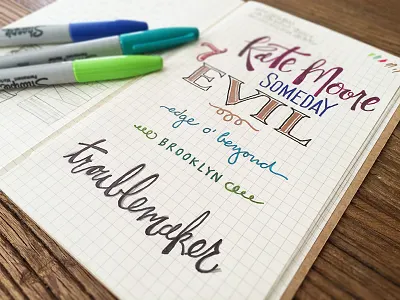 Kate Moore
SOMEDAY
EVIL
edge o' beyond
BROOKLYN
troublemaker
Sharpie
Sharpie